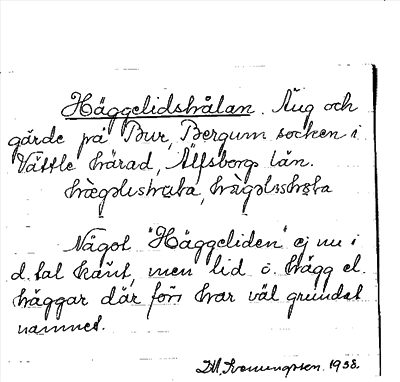 Häggelidshålan. Äng och
gärde på Bur, Bergum socken i
Vättle härad, Älfsborgs län.
Något "Häggeliden" ej nu i
d. tal känt, men lid o. hägg el.
häggar där förr har väl grundat
namnet.
1938.